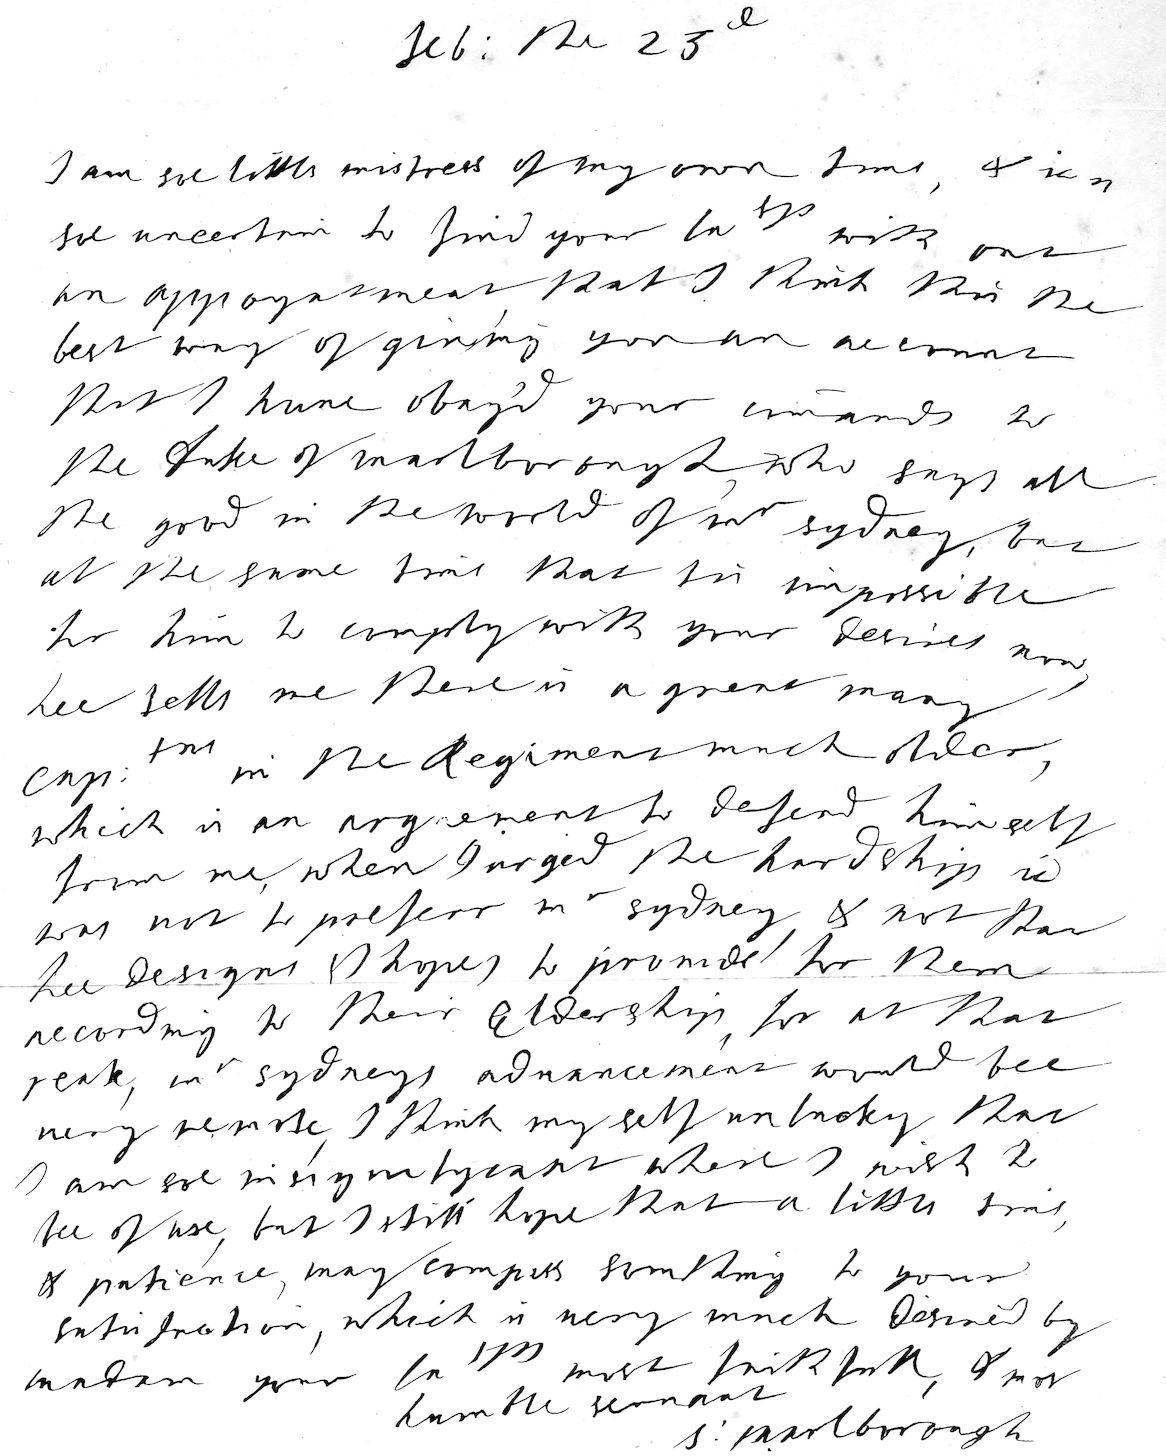 feb: the 23d
I am soe little mistress of my own time, & it is
soe uncertain to find your lasps with out
an appoyntment that I think this the
best way of giving you an account
that I have obay'd your comands to
the Duke of marlborough, who says all
the good in the world of mr sydney, but
at the same time that tis impossible
for him to comply with your desires now,
hee tells me there is a great many
Cap:tns in the Regiment much older,
which is an argument to defend him self
from me, when I urged the hardship it
was not to preferr mr sydney, & not that
hee designs (I hope) to provide for them
according to their Eldership, for at that
reate, mr sydneys advancement would bee
very remote, I think my self unlucky that
I am soe insignyfycant where I wish to
bee of use, but I still hope that a little time,
& patience, may compass something to your
satisfaction, which is very much desired by
madam your lasps most faithfull, & most
humble servant
s: marlborough